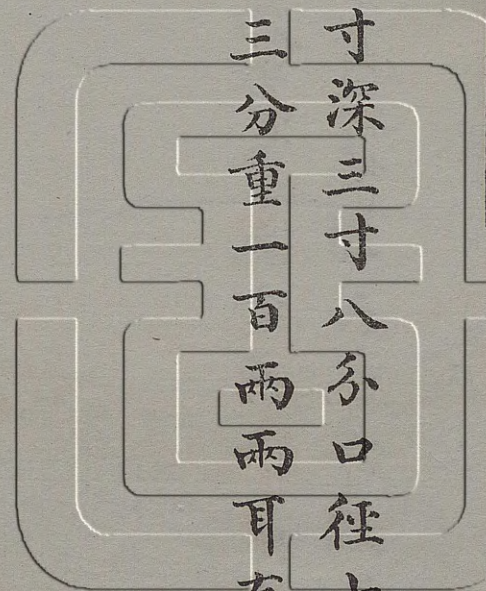 寸深三寸八分口徑
三分重一百兩兩耳